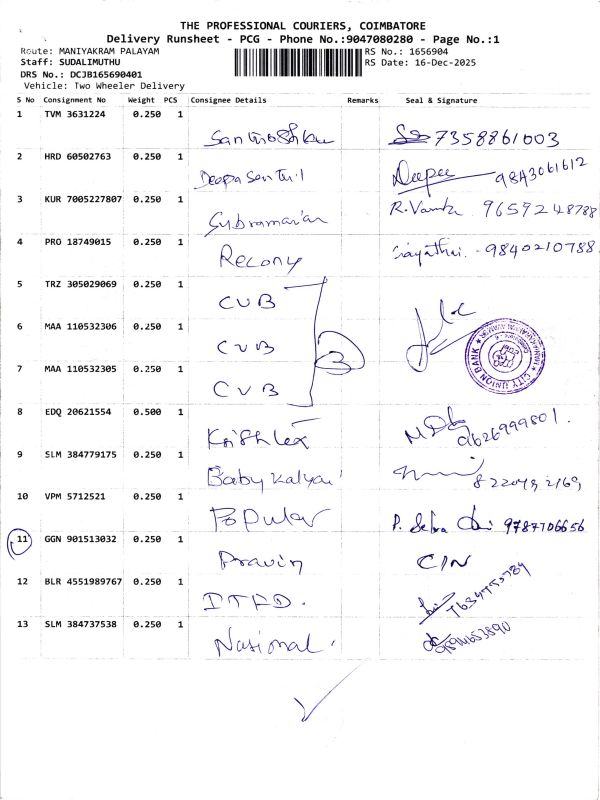 THE PROFESSIONAL COURIERS, COIMBATORE
Delivery Runsheet - PCG - Phone No.:9047080280 - Page No.:1
Route: MANIYAKRAM PALAYAM RS No.: 1656904
Staff: SUDALIMUTHU RS Date: 16-Dec-2025
DRS No.: DCJB165690401
Vehicle: Two Wheeler Delivery
S No Consignment No Weight PCS Consignee Details Remarks Seal & Signature
1 TVM 3631224 0.250 1 Santhoshku 7358861003
2 HRD 60502763 0.250 1 Deepa Senthil Deepa 9843061612
3 KUR 7005227807 0.250 1 Subramanian R. 9659248788
4 PRO 18749015 0.250 1 Recony 9840210788
5 TRZ 305029069 0.250 1 CUB
6 MAA 110532306 0.250 1 CUB 3
7 MAA 110532305 0.250 1 CUB
CITY UNION BANK
8 EDQ 20621554 0.500 1 9626999801.
9 SLM 384779175 0.250 1 Baby Kalyani
10 VPM 5712521 0.250 1 Popular P. Selva 9787706656
11 GGN 901513032 0.250 1 Pravin C/N
12 BLR 4551989767 0.250 1
13 SLM 384737538 0.250 1 National.